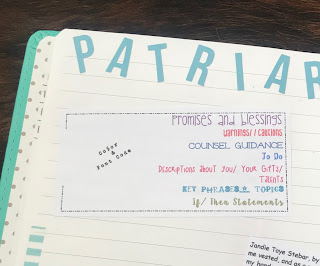 PATRIAR
Promises and blessings
Warnings/ Cautions
COUNSEL GUIDANCE
To Do
Descriptions about You/ Your Gifts/
Talents
KEY PHRASES & TOPICS
If/ Then Statements
Color
&
Font Code
Jandie Taye Stebar, by
me vested, and as
my hand